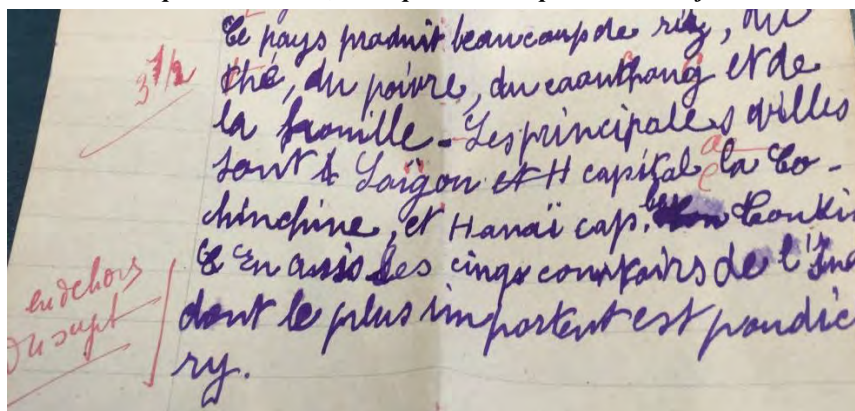 Ce pays produit beaucoup de riz, du
3 1/2
thé, du poivre, du caouthoug et de
la houille. Les principales villes
sont Saïgon et H capital la Co-
chinchine, et Hanaï cap. Tonkin
en dehors
du sujet
En asie les cinqs comptoirs de l'Ind
dont le plus important est pondic
ry.